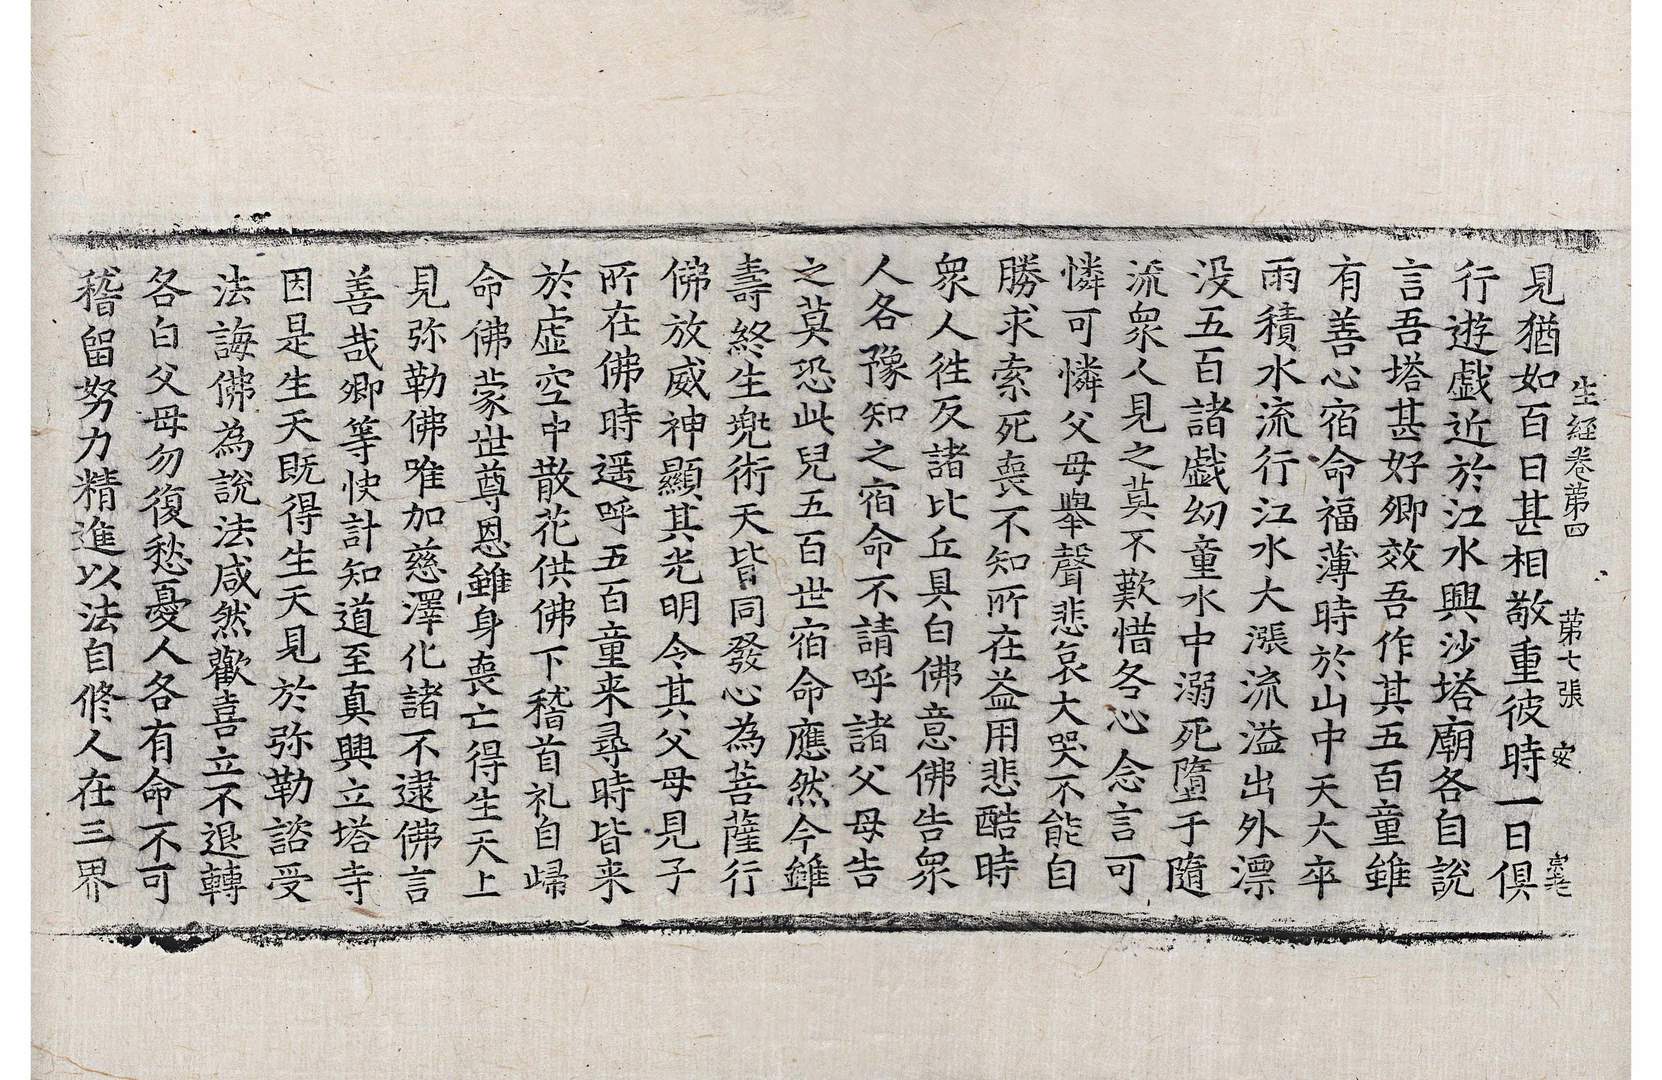 生經卷第四 第七張 安
見猶如百日甚相敬重彼時一日俱
行遊戲近於江水興沙塔廟各自說
言吾塔甚好卿效吾作其五百童雖
有善心宿命福薄時於山中天大卒
雨積水流行江水大漲流溢出外漂
没五百諸戲幼童水中溺死墮于隨
流衆人見之莫不歎惜各心念言可
憐可憐父母舉聲悲哀大哭不能自
勝求索死喪不知所在益用悲酷時
衆人往反諸比丘具白佛意佛告衆
人各豫知之宿命不請呼諸父母告
之莫恐此兒五百世宿命應然今雖
壽終生兠術天皆同發心為菩薩行
佛放威神顯其光明令其父母見子
所在佛時遥呼五百童来尋時皆来
於虚空中散花供佛下稽首礼自歸
命佛蒙世尊恩雖身喪亡得生天上
見弥勒佛唯加慈澤化諸不逮佛言
善哉卿等快計知道至真興立塔寺
因是生天既得生天見於弥勒諮受
法誨佛為說法咸然歡喜立不退轉
各白父母勿復愁憂人各有命不可
稽留努力精進以法自修人在三界